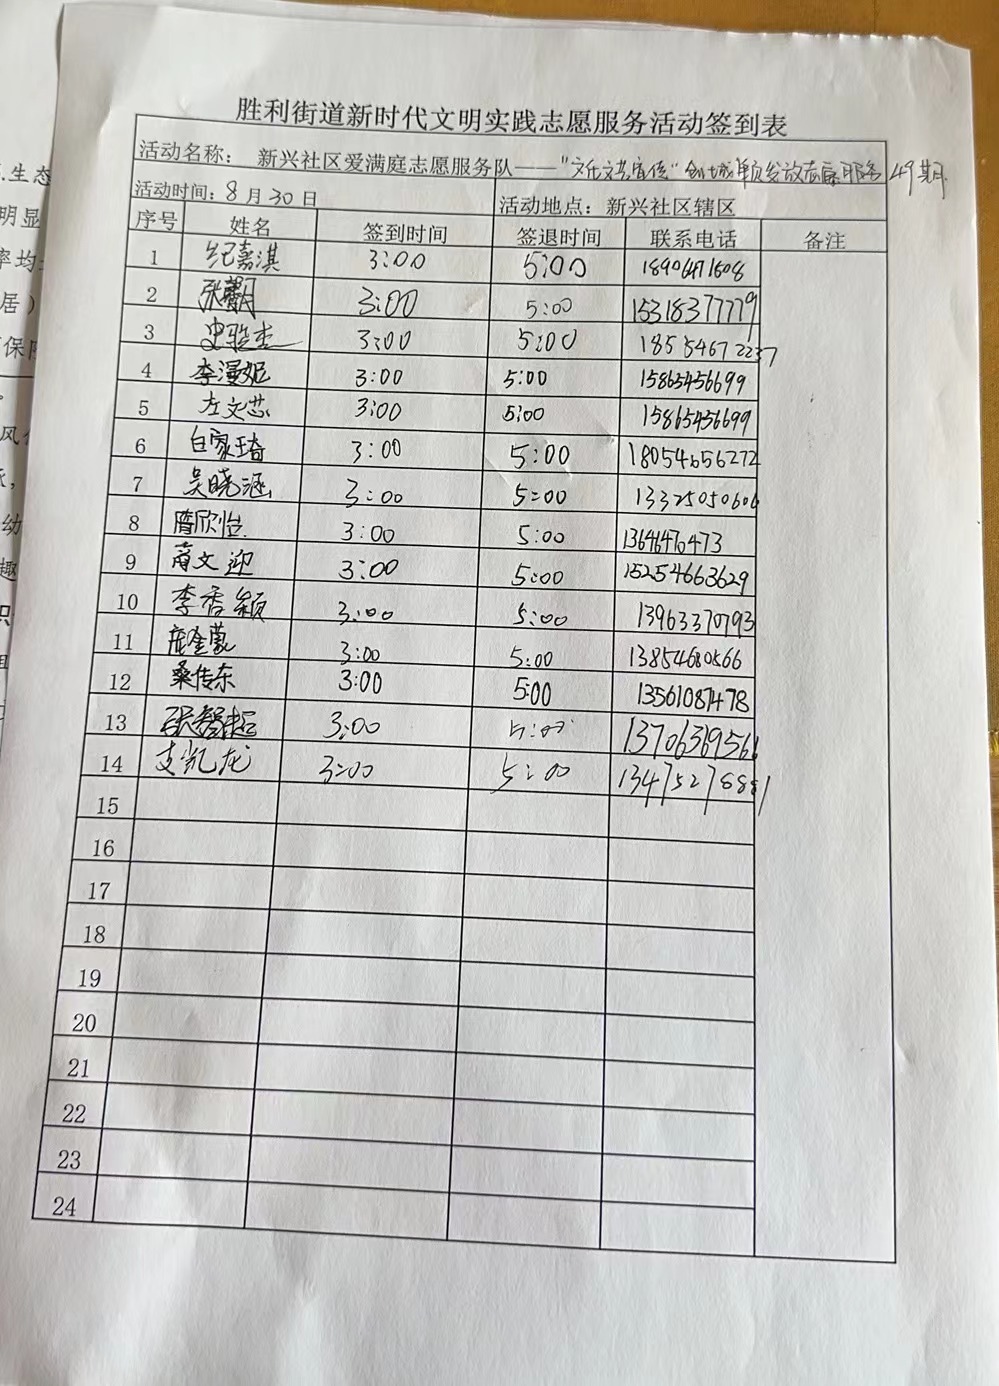 胜利街道新时代文明实践志愿服务活动签到表
活动名称： 新兴社区爱满庭志愿服务队——“文化文艺宣传”创城单页发放志愿服务 49期
活动时间：8月30日 活动地点：新兴社区辖区
序号 姓名 签到时间 签退时间 联系电话 备注
1 纪嘉淇 3:00 5:00
2 张 3:00 5:00 15318377779
3 史 3:00 5:00 18554672237
4 李漫妮 3:00 5:00 15865456699
5 左文芯 3:00 5:00 15865456699
6 白家琦 3:00 5:00 18054656272
7 吴晓涵 3:00 5:00 13325050606
8 隋欣怡 3:00 5:00 13646470473
9 文迎 3:00 5:00 15254663629
10 李香颖 3:00 5:00 13963370793
11 3:00 5:00
12 桑传东 3:00 5:00 13561087478
13 张智超 3:00 5:00 13706369566
14 支凯龙 3:00 5:00 13475278881
15
16
17
18
19
20
21
22
23
24